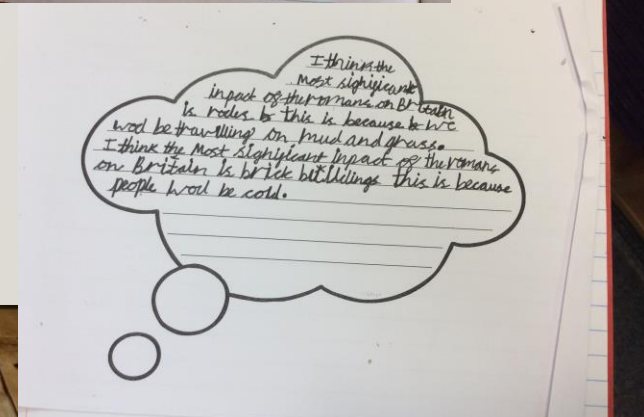 I think the
most sighigicant
inpact of the romans on Britain
is rodes b this is because b we
wod be travilling on mud and grass.
I think the most sighigicant inpact of the romans
on Britain is brick buildings this is because
people wod be cold.